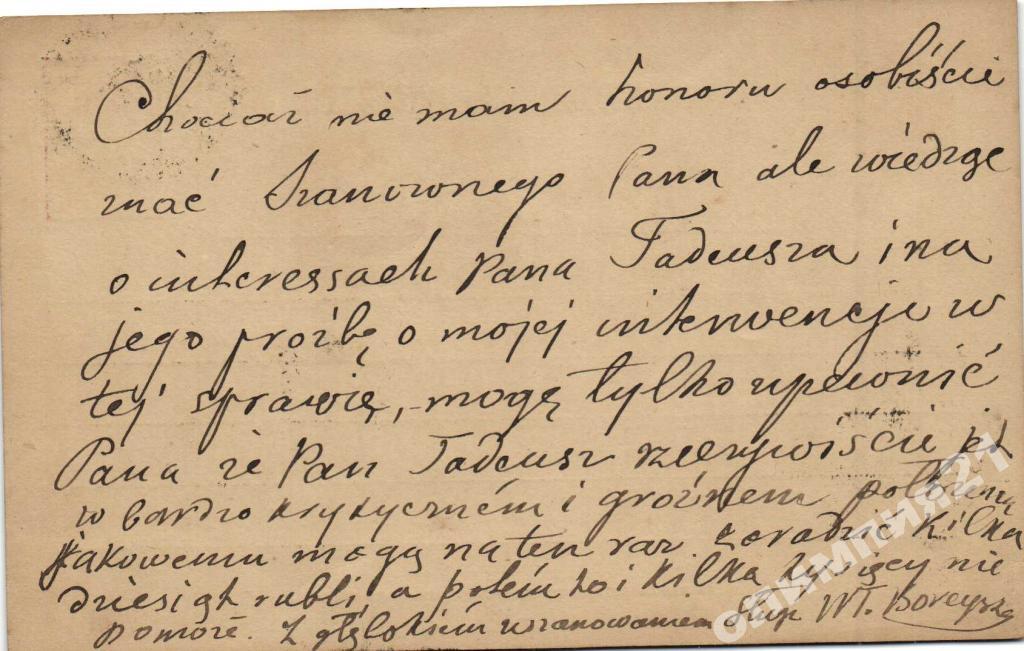 Chociaż nie mam honoru osobiście
znać Szanownego Pana ale wiedzę
o interessach Pana Tadeusza i na
jego proźbę o mojej intervencji w
tej sprawię, mogę tylko upewnić
Pana że Pan Tadeusz rzeczywiście jest
w bardzo krytyczném i groźnem położeniu
jakowemu mogą na ten raz zaradzić Kilka
dziesiąt rubli, a potém to i kilka tysięcy nie
pomoże. Z głębokiém uszanowaniem Wł. Boreysza
олимпия21